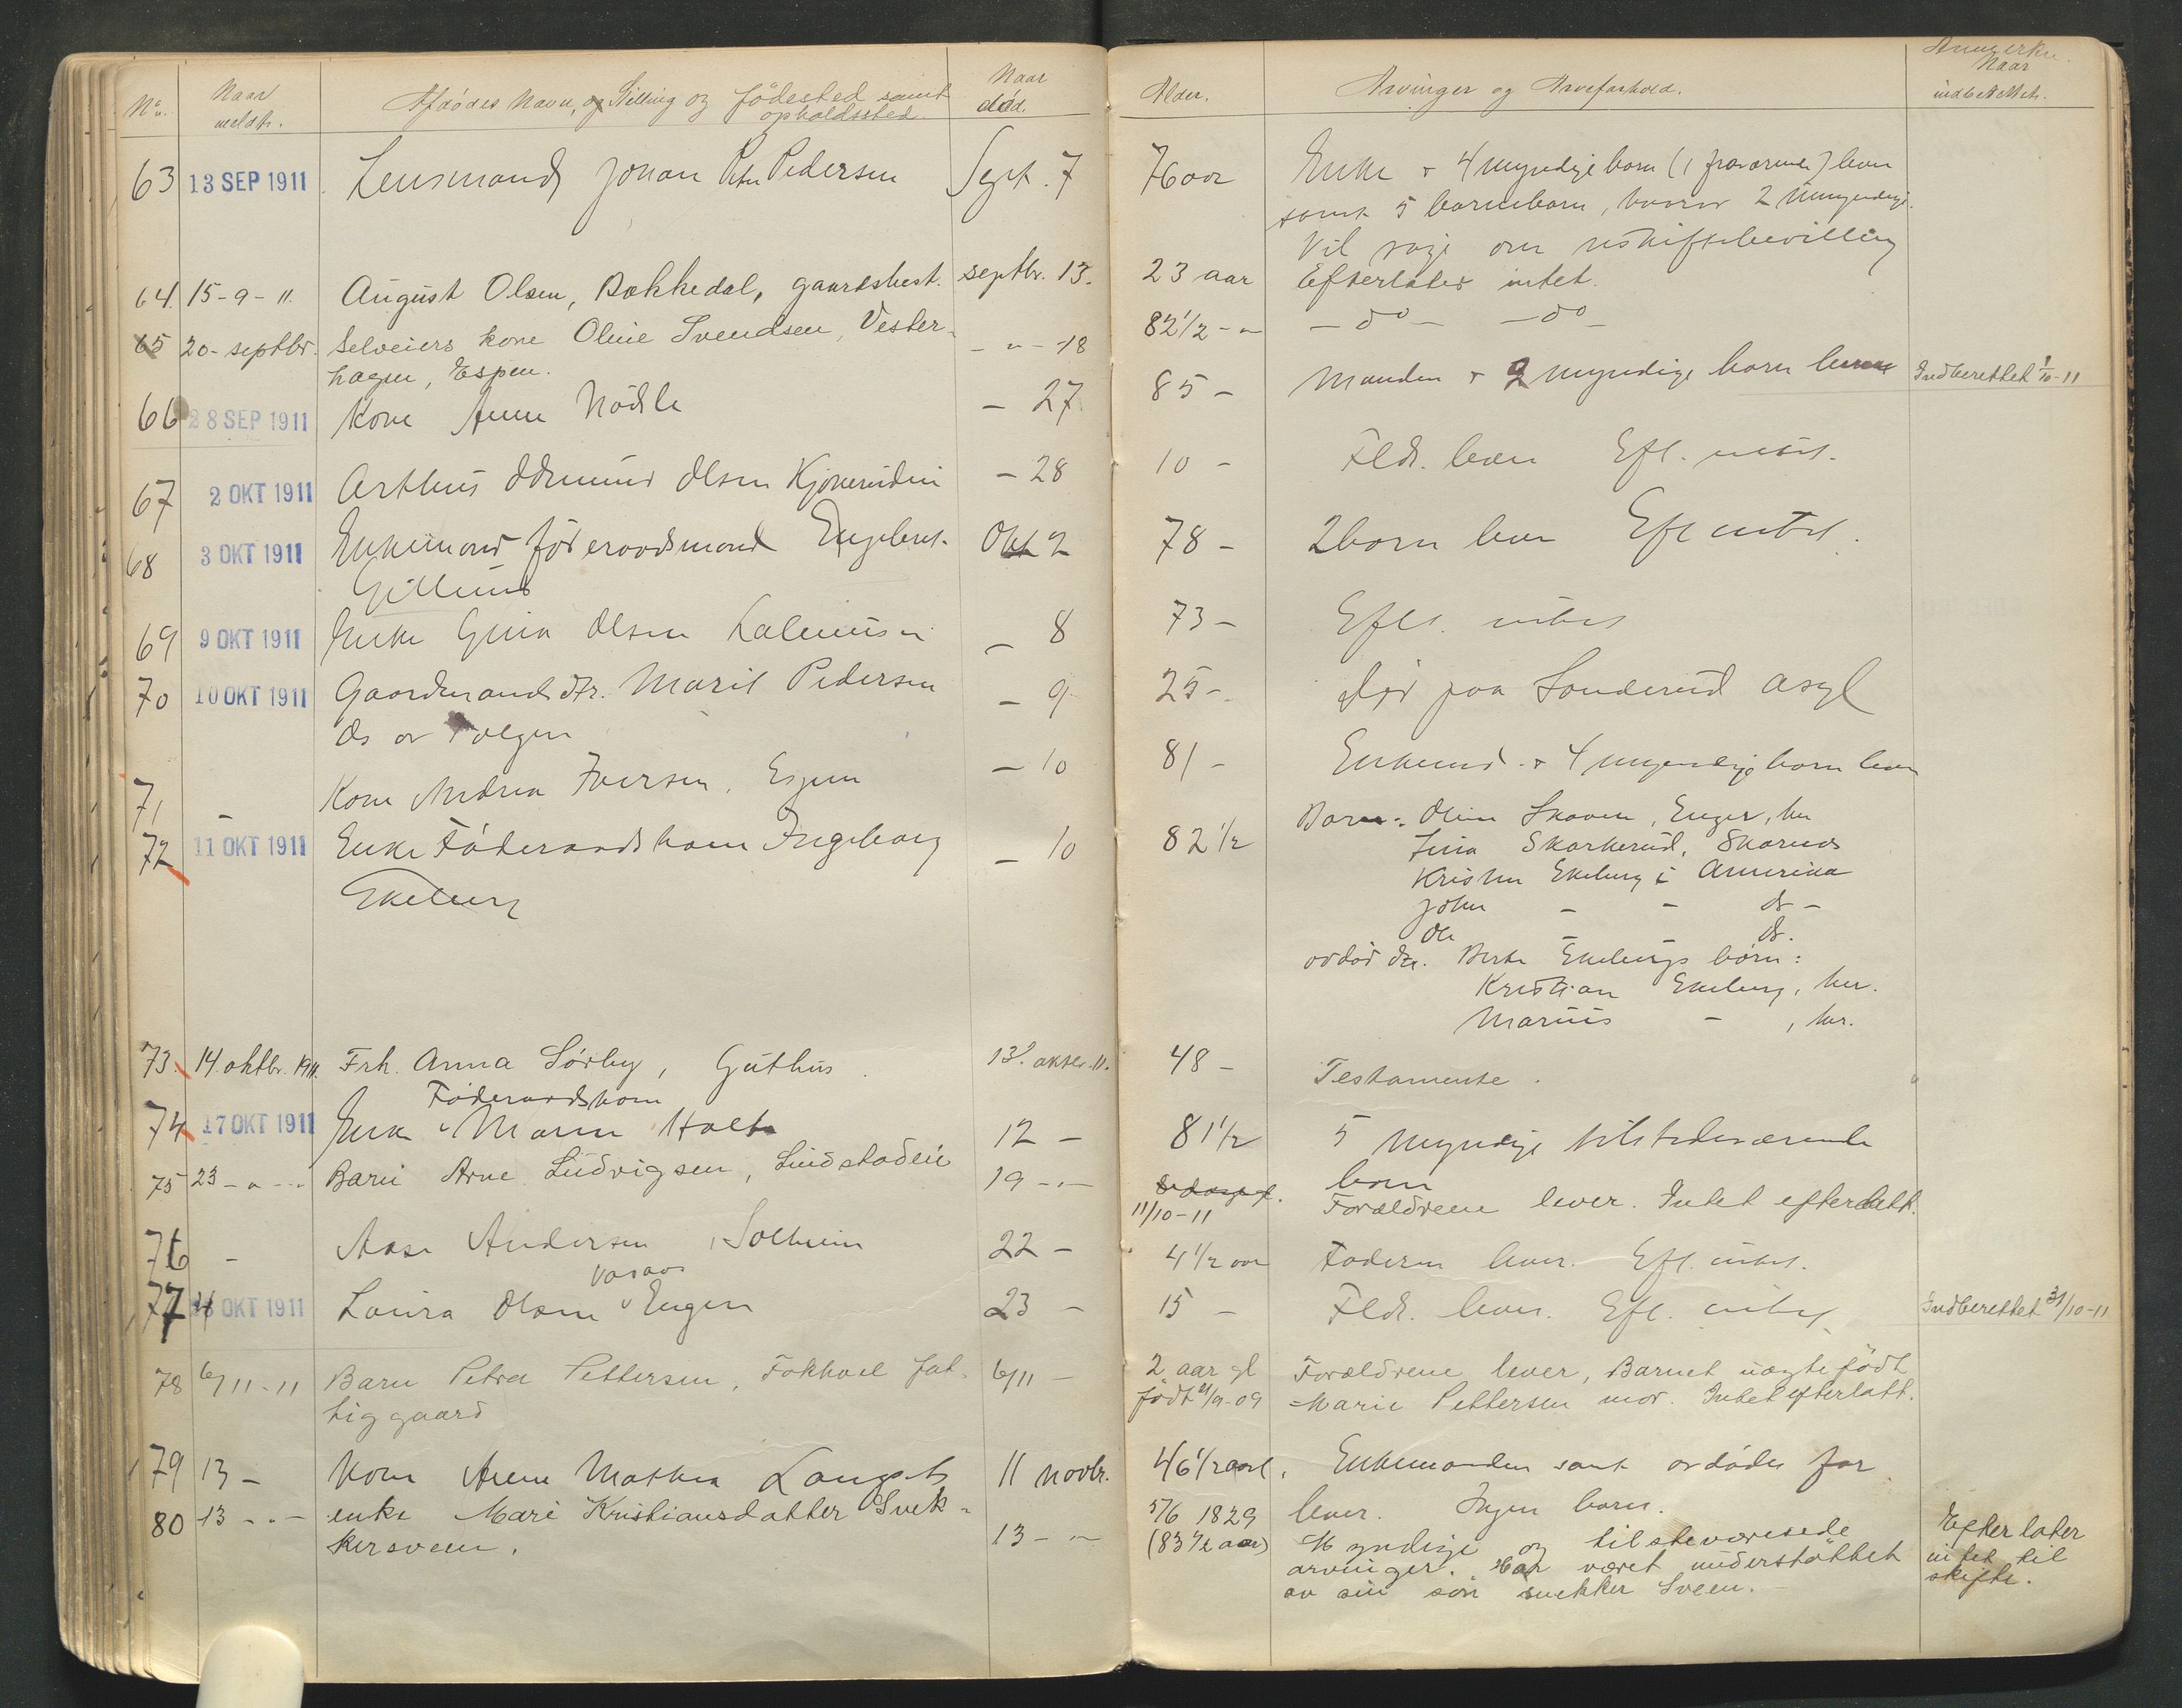 No. Naar meldt. Afdødes Navn, og Stilling og fødested samt opholdssted Naar død.
63 13 SEP 1911 Lensmand Johan Petr Pedersen Sept. 7
64. 15-9-11. August Olsen, Bækkedal, gaardsbest. septbr. 13.
65 20- septbr. Selveiers kone Oline Svendsen, Vester-
hagen, Espen. - " - 18
66 28 SEP 1911 Kone Anne Nödle - 27
67 2 OKT 1911 Arthur Odmund Olsen - 28
68 3 OKT 1911 Enkemand föderaadsmand Engebret Okt 2
Gillund
69 9 OKT 1911 Enke Gina Olsen - 8
70 10 OKT 1911 Gaardmandsdtr. Marit Pedersen - 9
71 - Kone Andrea Iversen, Espen - 10
72 11 OKT 1911 Enke Föderaadskone Ingeborg - 10
Ekeberg
73 14. oktbr. 1911. Frk. Anna Sørby, Guthus. 13. oktbr. 11.
Föderaadskone
74 17 OKT 1911 Enke Maren Holt 12 -
75 23 - " - Barn Arne Ludvigsen, Lundstadeie 19 - " -
76 - Aase Andersen, Solheim 22 -
77 OKT 1911 Laura Olsen Engen 23 -
78 6/11-11 Barn Petra Pettersen, Fokhoel fat-
tiggaard 6/11 -
79 13 - Kone Anne Mathea Langset 11 novbr.
80 13 - " - enke Mari Kristiansdatter Snek-
kersveen. 13 - " -
Alder. Arvinger og Arveforhold. Anmerkn. Naar indberettet.
76 aar Enke + 4 myndige børn (1 fraværende) lever
samt 5 barnebarn, hvorav 2 umyndige.
Vil søge om uskiftebevilling
23 aar Efterlater intet.
82 1/2 - " - do - - do -
85 - Manden + 2 myndige børn lever Indberettet 1/10-11
10 - Fldr. lever Eft. intet.
78 - 2 børn lever Eft intet.
73 - Eftl. intet
25 - død paa Sonderud asyl
81 - Enkemd. + 4 myndige børn lever
82 1/2 Børn: Oline Skoven, Enger, her
Lina Skarkerud, Skarnes
Kristen Ekeberg i Amerika
John - - do -
Ole - - do.
avdød dtr. Berte Ekebergs børn:
Kristian Ekeberg, her.
Marius - , her.
48 - Testamente.
81 1/2 5 myndige tilstedeværende
børn
11/10-11 Forældrene lever. Intet efterlatt.
4 1/2 aar Faderen lever. Eft. intet.
15 - Fldr. lever. Eft. intet Indberettet 31/10-11
2 aar gl Forældrene lever, Barnet uægtefödt
födt 21/9-09 Marie Pettersen mor. Intet efterlatt.
46 1/2 aar Enkemanden samt avdødes far
lever. Ingen børn.
5/6 1829
(83 1/2 aar) Myndige og tilsteværesede
arvinger. Har været understöttet
av sin sön snekker Sveen.
Efterlater
intet til
skifte.